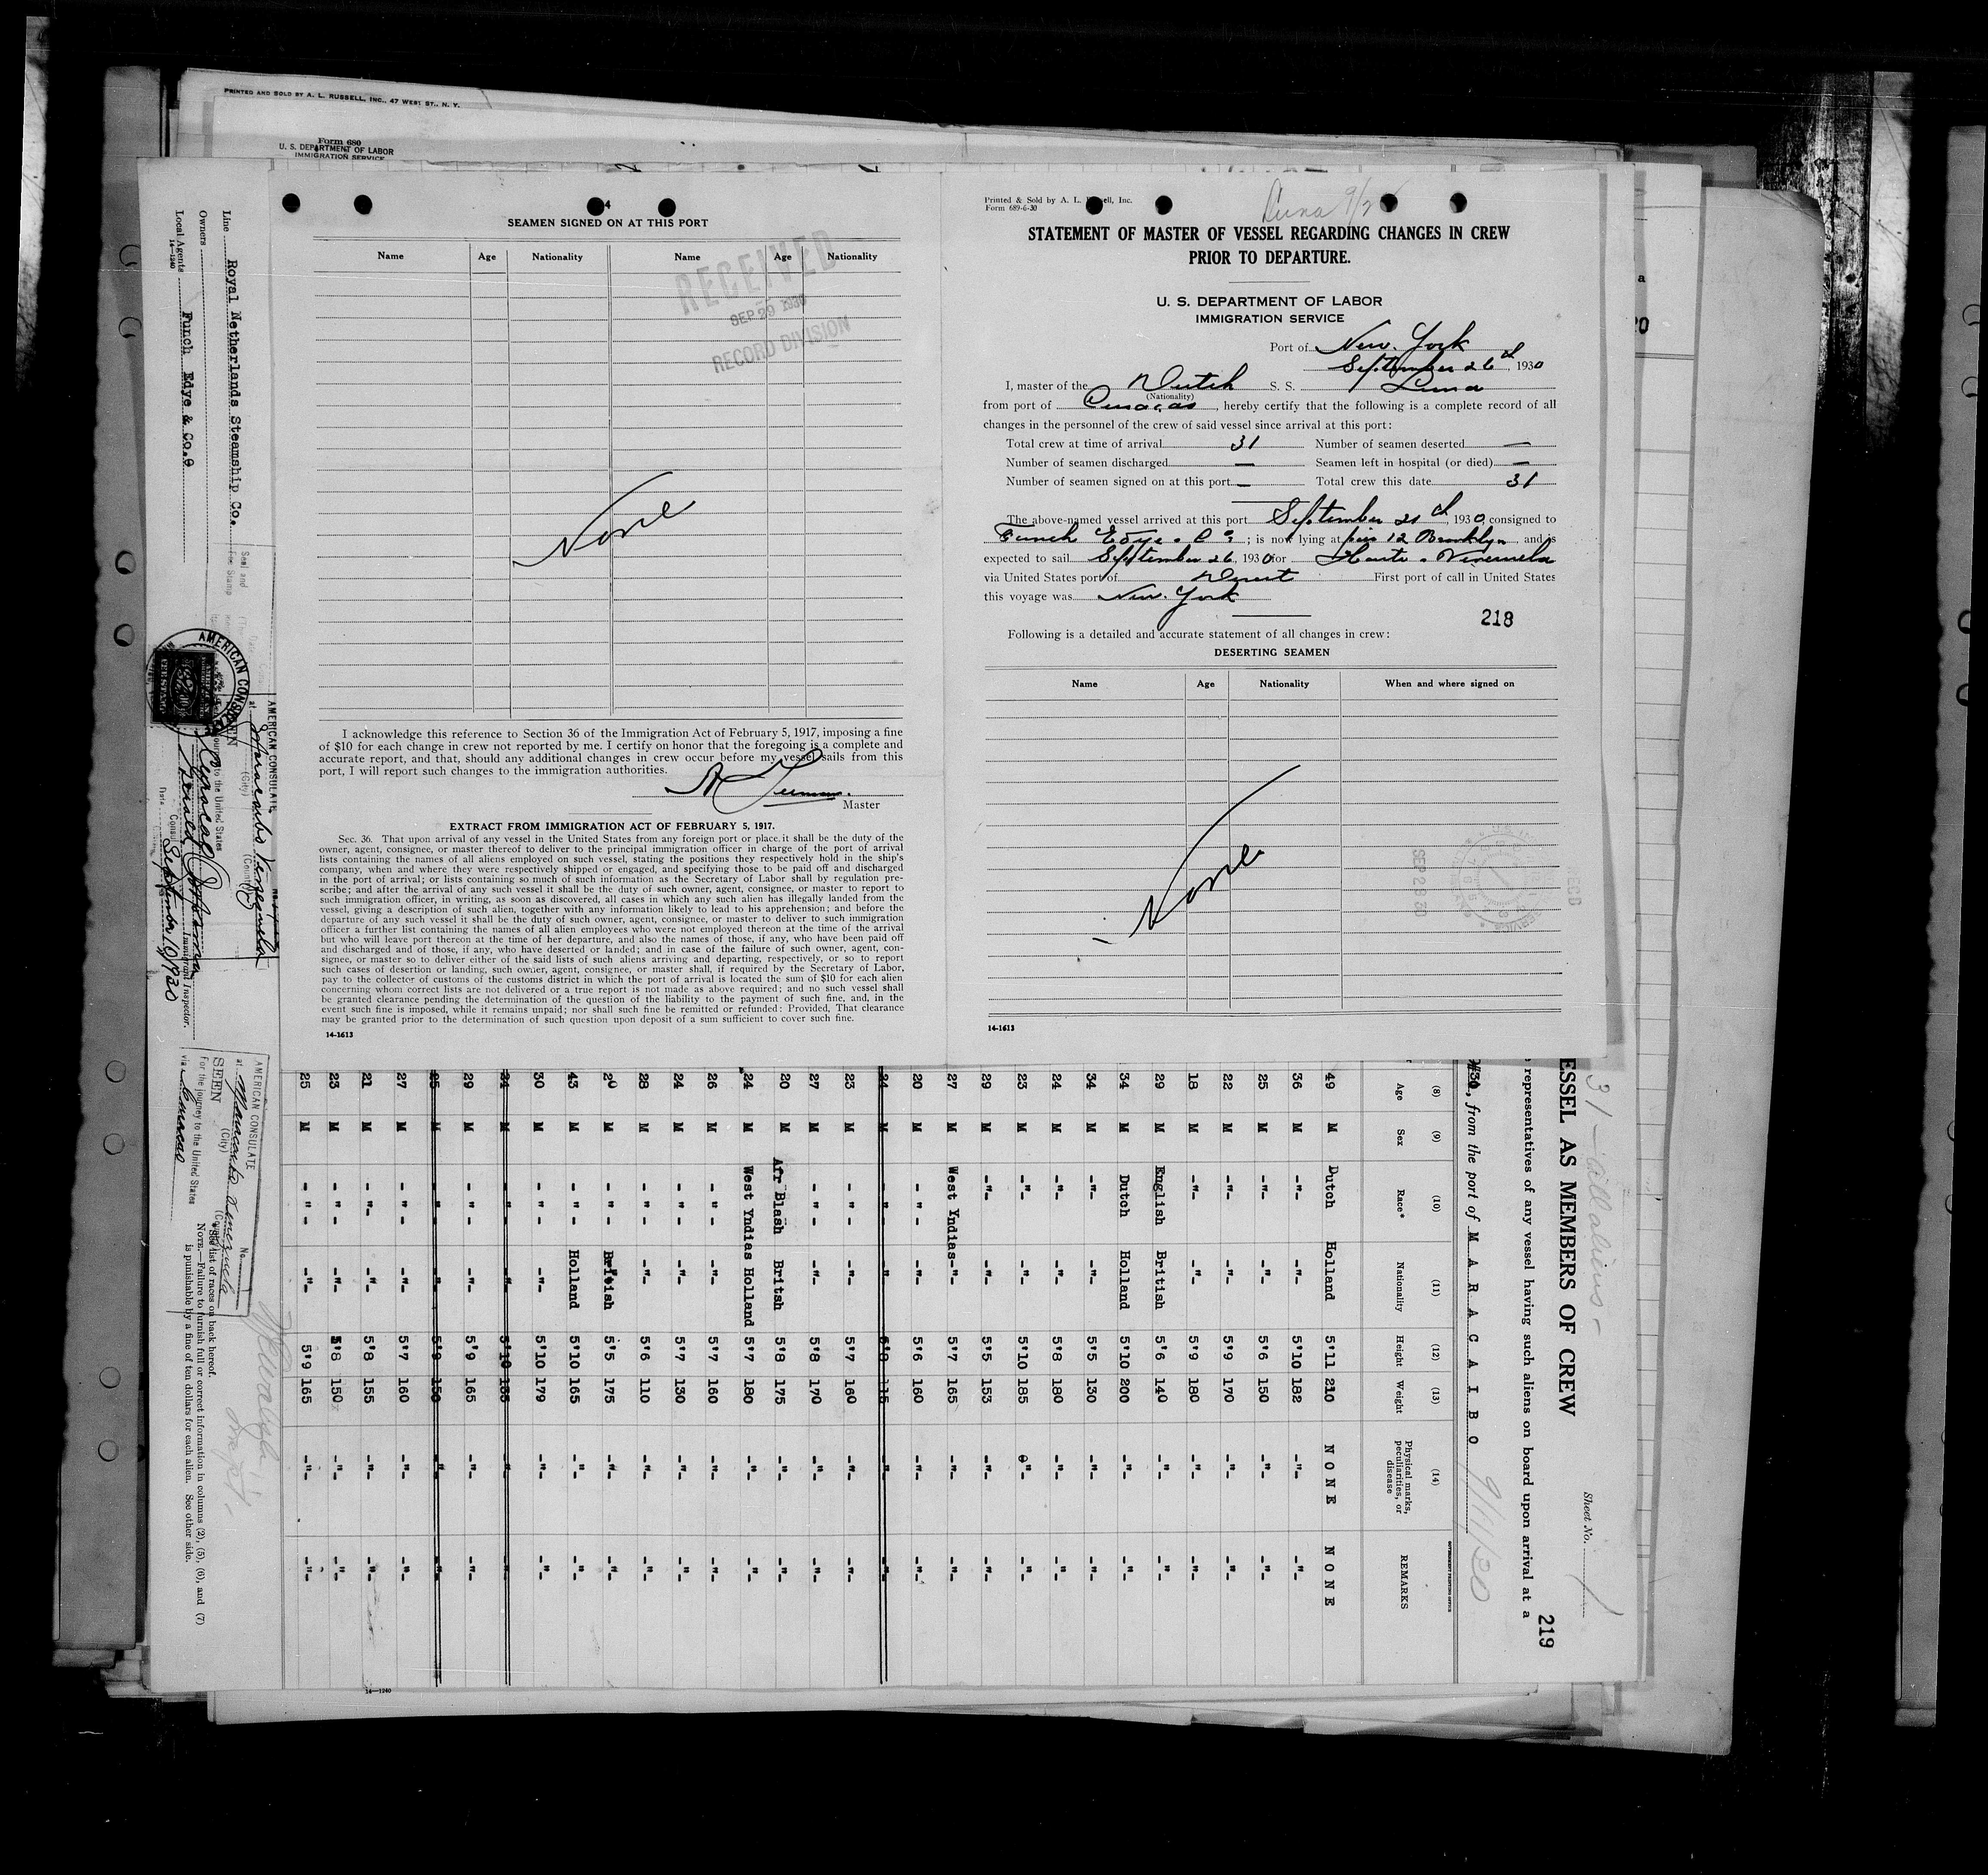 PRINTED AND SOLD BY A. L. RUSSELL, INC., 47 WEST ST., N. Y.
Form 680
U. S. DEPARTMENT OF LABOR
IMMIGRATION SERVICE
4
SEAMEN SIGNED ON AT THIS PORT
Name Age Nationality Name Age Nationality
RECEIVED
SEP 29 1930
RECORD DIVISION
None
I acknowledge this reference to Section 36 of the Immigration Act of February 5, 1917, imposing a fine
of $10 for each change in crew not reported by me. I certify on honor that the foregoing is a complete and
accurate report, and that, should any additional changes in crew occur before my vessel sails from this
port, I will report such changes to the immigration authorities.
Master
EXTRACT FROM IMMIGRATION ACT OF FEBRUARY 5, 1917.
Sec. 36. That upon arrival of any vessel in the United States from any foreign port or place it shall be the duty of the
owner, agent, consignee, or master thereof to deliver to the principal immigration officer in charge of the port of arrival
lists containing the names of all aliens employed on such vessel, stating the positions they respectively hold in the ship's
company, when and where they were respectively shipped or engaged, and specifying those to be paid off and discharged
in the port of arrival; or lists containing so much of such information as the Secretary of Labor shall by regulation pre-
scribe; and after the arrival of any such vessel it shall be the duty of such owner, agent, consignee, or master to report to
such immigration officer, in writing, as soon as discovered, all cases in which any such alien has illegally landed from the
vessel, giving a description of such alien, together with any information likely to lead to his apprehension; and before the
departure of any such vessel it shall be the duty of such owner, agent, consignee, or master to deliver to such immigration
officer a further list containing the names of all alien employees who were not employed thereon at the time of the arrival
but who will leave port thereon at the time of her departure, and also the names of those, if any, who have been paid off
and discharged and of those, if any, who have deserted or landed; and in case of the failure of such owner, agent, con-
signee, or master so to deliver either of the said lists of such aliens arriving and departing, respectively, or so to report
such cases of desertion or landing, such owner, agent, consignee, or master shall, if required by the Secretary of Labor,
pay to the collector of customs of the customs district in which the port of arrival is located the sum of $10 for each alien
concerning whom correct lists are not delivered or a true report is not made as above required; and no such vessel shall
be granted clearance pending the determination of the question of the liability to the payment of such fine, and, in the
event such fine is imposed, while it remains unpaid; nor shall such fine be remitted or refunded: Provided, That clearance
may be granted prior to the determination of such question upon deposit of a sum sufficient to cover such fine.
14-1613
Printed & Sold by A. L. Inc.
Form 689-6-30
STATEMENT OF MASTER OF VESSEL REGARDING CHANGES IN CREW
PRIOR TO DEPARTURE.
U. S. DEPARTMENT OF LABOR
IMMIGRATION SERVICE
Port of New York
September 26th, 1930
I, master of the Dutch S. S. Luna
(Nationality)
from port of Curaçao, hereby certify that the following is a complete record of all
changes in the personnel of the crew of said vessel since arrival at this port:
Total crew at time of arrival 31 Number of seamen deserted —
Number of seamen discharged — Seamen left in hospital (or died) —
Number of seamen signed on at this port — Total crew this date 31
The above-named vessel arrived at this port September 21th, 1930, consigned to
Funch Edye & Co; is now lying at pier 12 Brooklyn, and is
expected to sail September 26, 1930 for Haiti - Venezuela
via United States port of Direct First port of call in United States
this voyage was New York
218
Following is a detailed and accurate statement of all changes in crew:
DESERTING SEAMEN
Name Age Nationality When and where signed on
None
SEP 28 30
RECD
14-1613
Line Royal Netherlands Steamship Co.
Owners
Local Agents Funch Edye & Co.
14-1240
AMERICAN CONSULATE
at Maracaibo Venezuela
(City) (Country)
SEEN
to the United States
Immigrant Inspector.
September 10, 1930
AMERICAN CONSULATE
at Maracaibo Venezuela
(City) (Country)
No.
SEEN
For the journey to the United States
via Curacao
*See list of races on back hereof.
NOTE.—Failure to furnish full or correct information in columns (2), (5), (6), and (7)
is punishable by a fine of ten dollars for each alien. See other side.
31 - all aliens -
Sheet No. 1
ESSEL AS MEMBERS OF CREW
219
representatives of any vessel having such aliens on board upon arrival at a
from the port of MARACAIBO 9/11/30
(8) (9) (10) (11) (12) (13) (14)
Age Sex Race* Nationality Height Weight Physical marks, peculiarities, or disease REMARKS
49 M Dutch Holland 5'11 210 NONE NONE
36 M -"- -"- 5'10 182 -"- -"-
25 M -"- -"- 5'6 150 -"- -"-
22 M -"- -"- 5'9 170 -"- -"-
18 M -"- -"- 5'9 180 -"- -"-
29 M English British 5'6 140 -"- -"-
34 M Dutch Holland 5'10 200 -"- -"-
34 M -"- -"- 5'5 130 -"- -"-
24 M -"- -"- 5'8 180 -"- -"-
23 M -"- -"- 5'10 185 -"- -"-
29 M -"- -"- 5'5 153 -"- -"-
27 M West Yndias -"- 5'7 165 -"- -"-
20 M -"- -"- 5'6 160 -"- -"-
24 M -"- -"- 5'8 115 -"- -"-
23 M -"- -"- 5'7 160 -"- -"-
27 M -"- -"- 5'8 170 -"- -"-
20 M Afr Blash Britsh 5'8 175 -"- -"-
24 M West Yndias Holland 5'7 180 -"- -"-
26 M -"- -"- 5'7 160 -"- -"-
24 M -"- -"- 5'7 130 -"- -"-
28 M -"- -"- 5'6 110 -"- -"-
20 M -"- British 5'5 175 -"- -"-
43 M -"- Holland 5'10 165 -"- -"-
30 M -"- -"- 5'10 179 -"- -"-
M -"- -"- 5'10 -"- -"-
29 M -"- -"- 5'9 165 -"- -"-
M -"- -"- 5'9 150 -"- -"-
27 M -"- -"- 5'7 160 -"- -"-
21 M -"- -"- 5'8 155 -"- -"-
23 M -"- -"- 5'8 150 -"- -"-
25 M -"- -"- 5'9 165 -"- -"-
14-1240